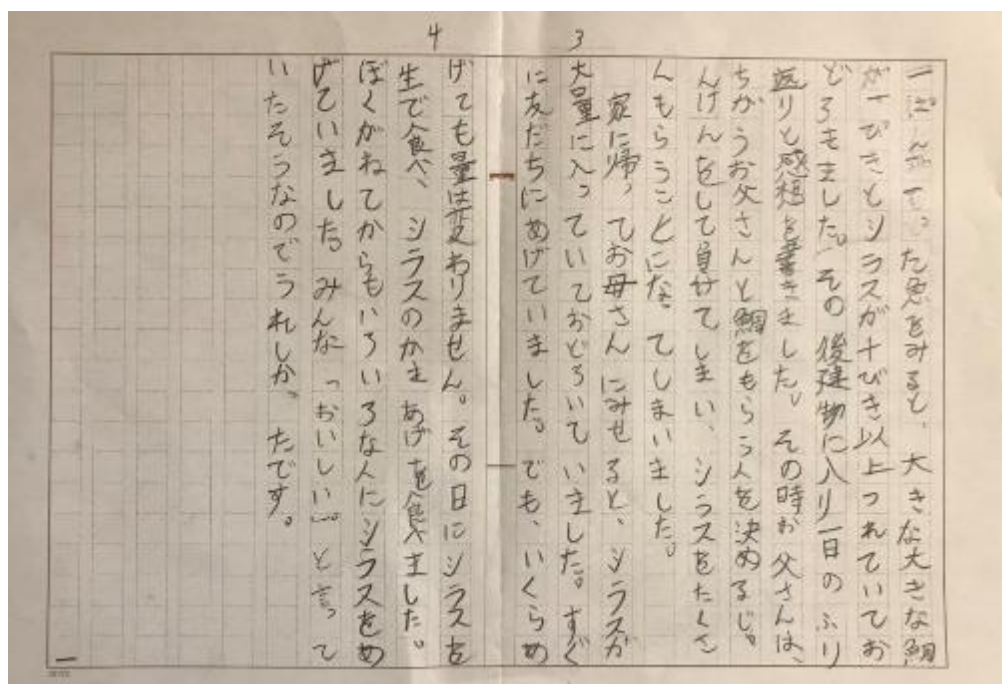 4
3
一ぱんさいごった魚をみると、大きな大きな鯛
が一ぴきとシラスが十ぴき以上つれていてお
どろきました。その後建物に入り一日のふり
返りと感想を書きました。その時お父さんは、
ちがうお父さんと鯛をもらう人を決めるじゃ
んけんをして負けてしまい、シラスをたくさ
んもらうことになってしまいました。
家に帰ってお母さんにみせると、シラスが
大量に入っていておどろいていました。すぐ
に友だちにあげていました。でも、いくらあ
げても量は変わりません。その日にシラスを
生で食べ、シラスのかまあげを食べました。
ぼくがねてからもいろいろな人にシラスをあ
げていました。みんな「おいしい」。と言って
いたそうなのでうれしかったです。